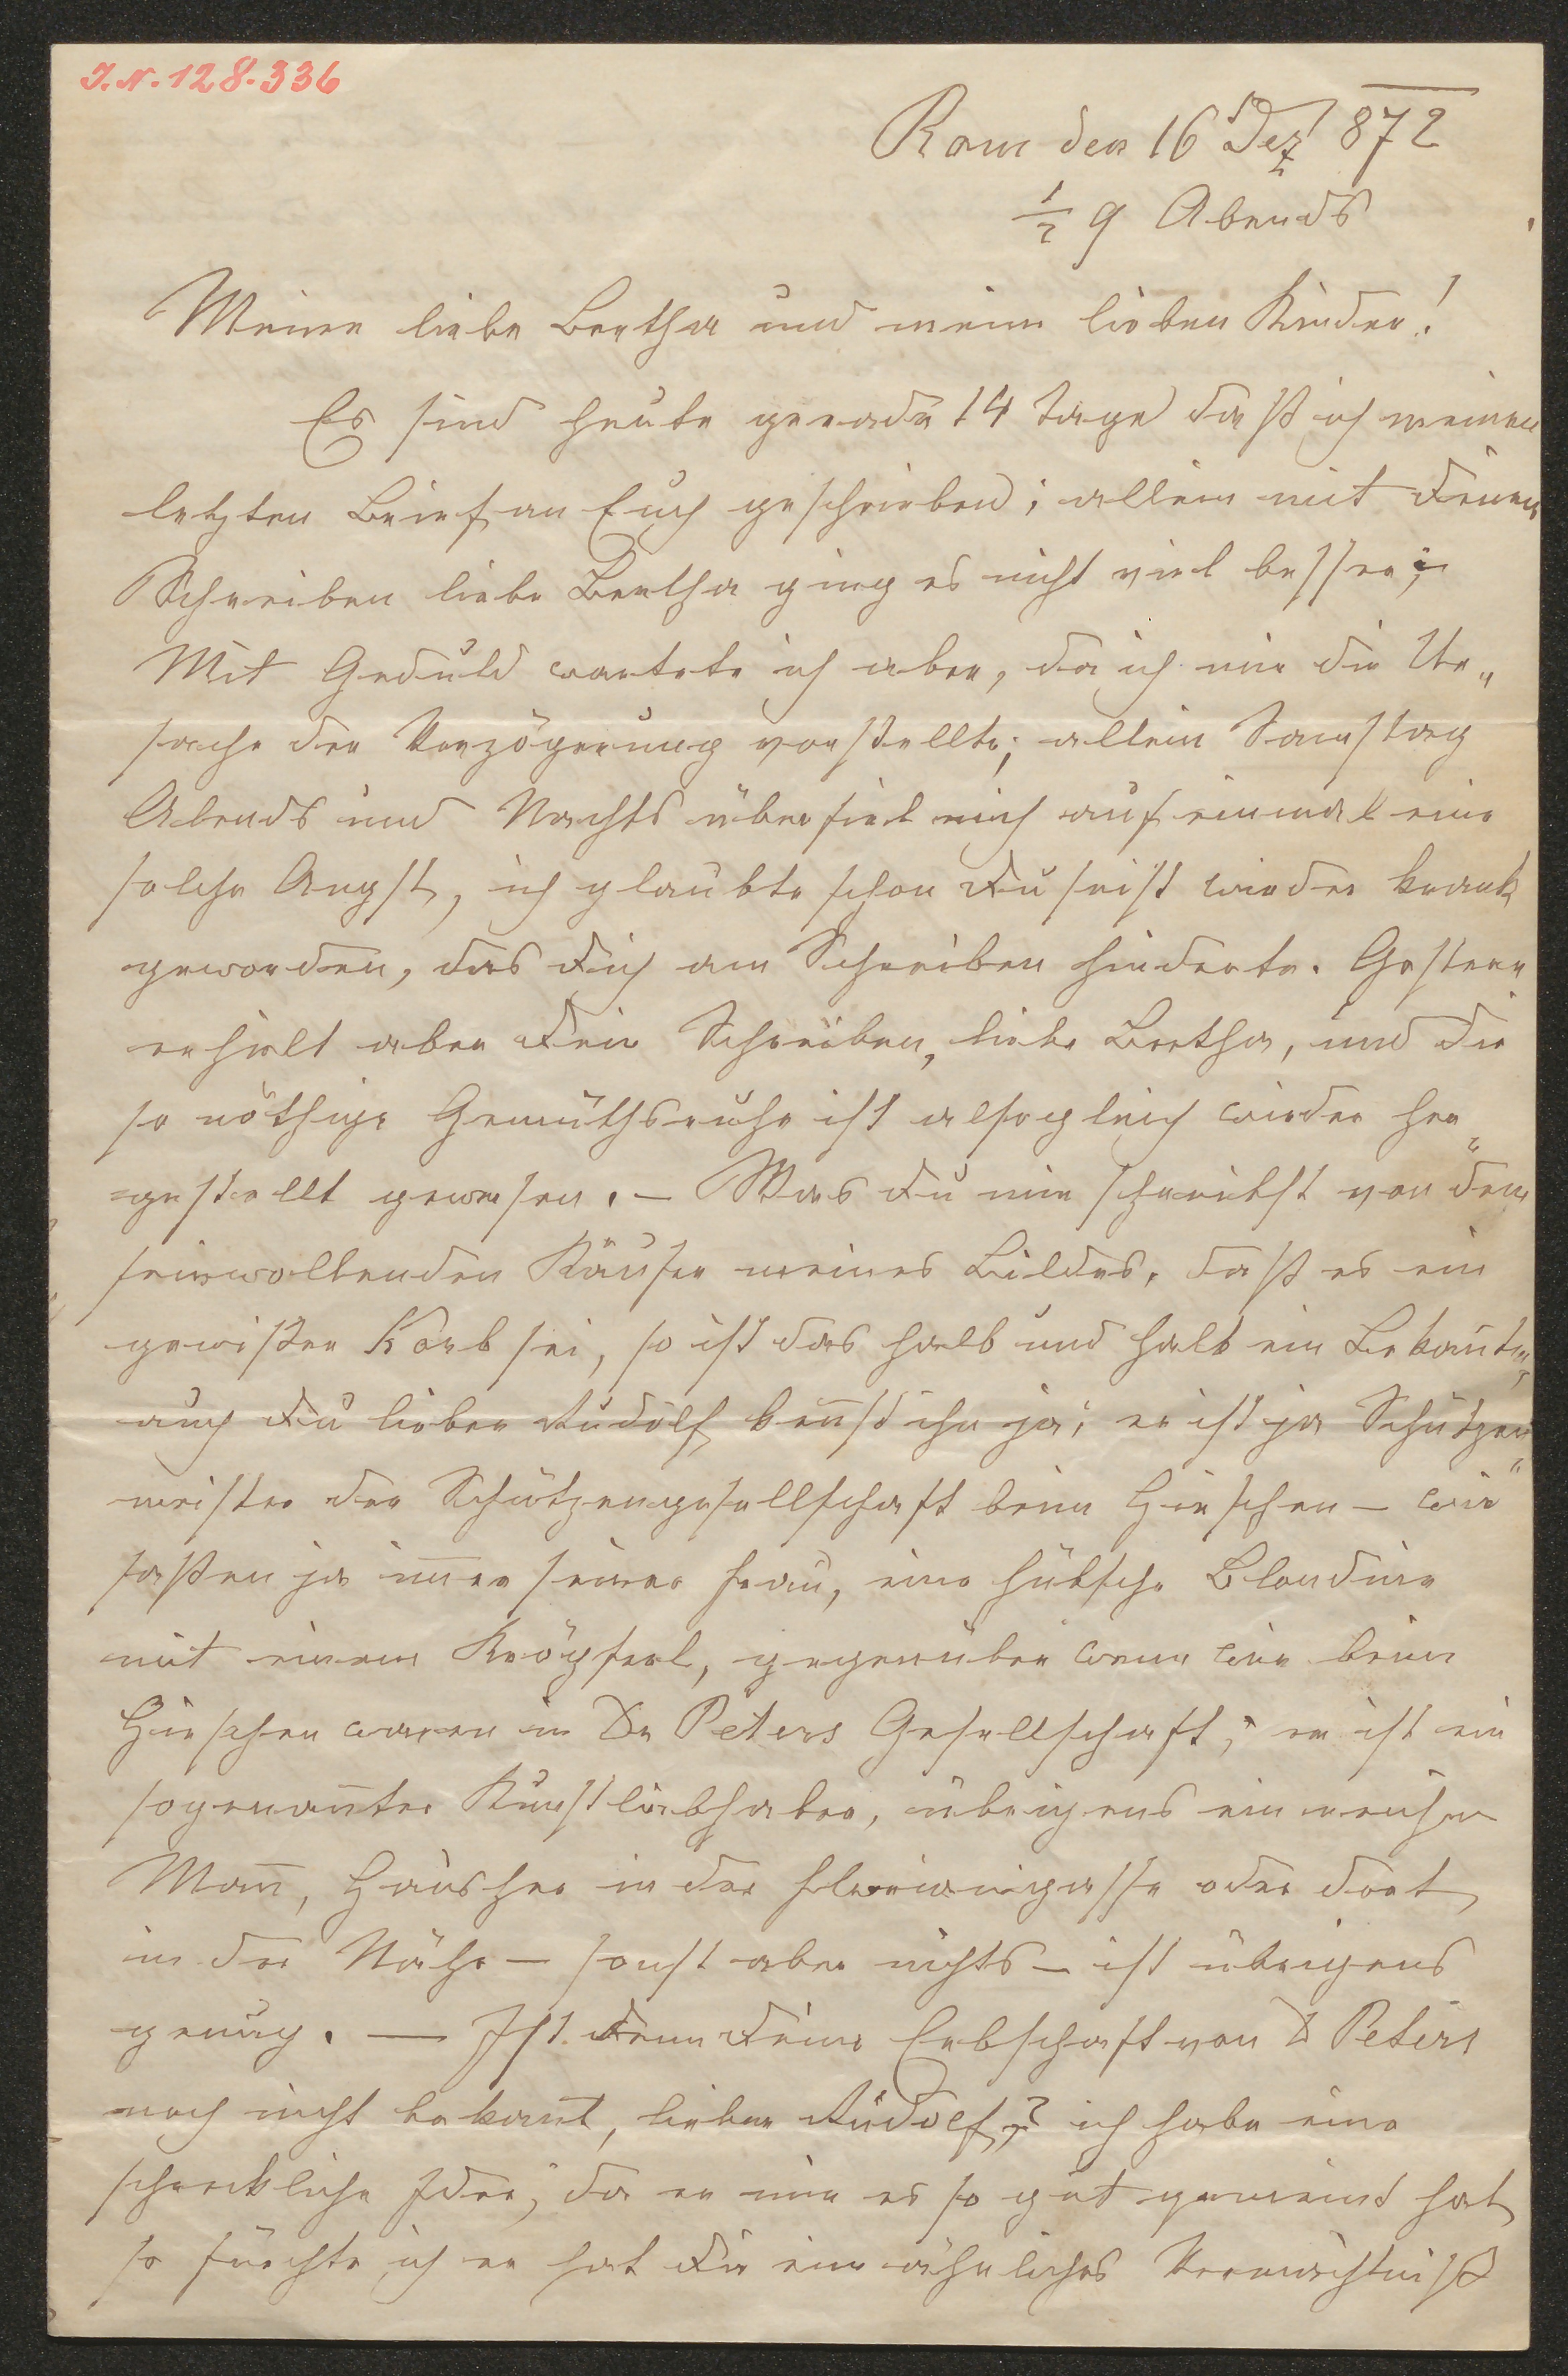 I.N. 128.336
Rom den 16 Dez 872
½ 9 Abends
Meine liebe Bertha und meine lieben Kinder!
Es sind heute gerade 14 Tage daß ich meinen
letzten Brief an Euch geschrieben; allein mit Deinem
Schreiben liebe Bertha ging es nicht viel besser;
Mit Geduld wartete ich aber, da ich mir die Ur„
sache der Verzögerung vorstellte; allein Samstag
Abends und Nachts überfiel mich auf einmal eine
solche Angst, ich glaubte schon Du seist wieder krank
geworden, das Dich am Schreiben hinderte. Gestern
erhielt aber Dein Schreiben, liebe Bertha, und die
so nöthige Gemüthsruhe ist alsogleich wieder her„
gestellt gewesen. – Was Du mir schreibst von dem
seinwollenden Käufer meines Bildes, daß es ein
gewißer Korb sei, so ist das halb und halb ein Bekannter,
auch Du lieber Rudolf kennst ihn ja; er ist ja Schützen„
meister der Schützengesellschaft beim Hirschen – wir
saßen ja im̅er seiner Frau, eine hübsche Blondine
mit einem Kröpferl, gegenüber wenn wir beim
Hirschen waren in Dr Peters Gesellschaft; er ist ein
sogenan̅ter Kunstliebhaber, übrigens ein reicher
Man̅, Hausherr in der Florianigasse oder dort
in der Nähe – sonst aber nichts – ist übrigens
genug. — Ist denn Deine Erbschaft von D Peters
noch nicht bekan̅t, lieber Rudolf? ich habe eine
schreckliche Idee; da er mir es so gut gemeint hat
so fürchte ich er hat Dir ein ähnliches Vermächtniß